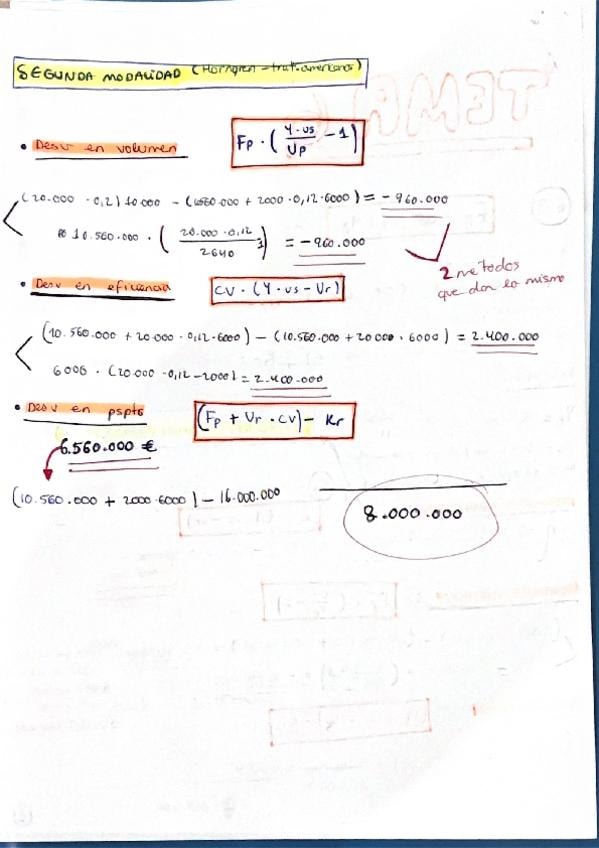 SEGUNDA MODALIDAD (Horngren - trat. americano)
• Desv en volumen Fp · (Y · us / Up - 1)
(20.000 · 0,12) 10.000 - (10.560.000 + 2000 · 0,12 · 6000) = - 960.000
10.560.000 · (20.000 · 0,12 / 2640 - 1) = - 960.000
2 métodos
que dan lo mismo
• Desv en eficiencia CV · (Y · us - Vr)
(10.560.000 + 20.000 · 0,12 · 6000) - (10.560.000 + 20000 · 6000) = 2.400.000
6000 · (20.000 · 0,12 - 2000) = 2.400.000
• Desv en pspto (Fp + Vr · CV) - Kr
6.560.000 €
(10.560.000 + 2000 · 6000) - 16.000.000
8.000.000